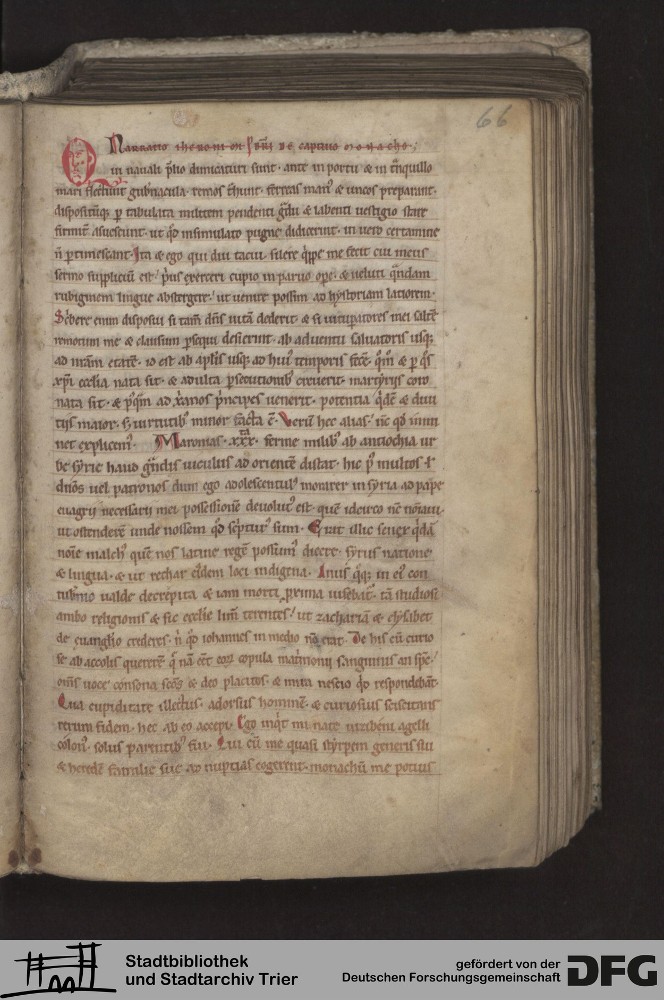 66
Narratio iheronimi pbri de captiuo monacho;
Qui nauali p̄lio dimicaturi sunt · ante in portu & in tn̄quillo
mari flectunt gub̄nacula · remos t̄hunt · ferreas man᷒ & uncos preparant ·
dispositūq; ꝑ tabulata militem pendenti g̃du & labenti uestigio stare
firmit̄ assuescunt · ut qd̓ insimulato pugne didicerint · in uero certamine
n̄ ꝑtimescant · Ita & ego qui diu tacui · silere q̓ppe me fecit cui meus
sermo suppliciū est · p̓us exerceri cupio in paruo ope · & ueluti q̃ndam
rubiginem lingue abstergere · ut uenire possim ad hystoriam latiorem ·
Sc̓bere enim disposui si tam̄ dn̄s uitā dederit · & si uitupatores mei saltē
remotum me & clausum ꝑsequi desierint · ab aduentu saluatoris usq;
ad nr̄am etatē · id est ab aplis usq; ad hui᷒ temporis fecē · qm̄ & ꝑ q̓s
xp̄i ecclia nata sit · & adulta ꝑsecutionib᷒ creuerit · martyrijs coro
nata sit · & p᷒q̃m ad xp̄ianos p̓ncipes uenerit · potentia q̓dē & diui
tijs maior · s; uirtutib᷒ minor facta ē · Verū hec alias · nc̄ qd̓ immi
net explicem᷒ · Maronias · xxx · ferme milib᷒ ab antiochia ur
be syrie haud g̃ndis uiculus ad orientē distat · hic p᷒ multos ł
dn̄os uel patronos dum ego adolescentul᷒ morarer in syria ad pape
euagrij necessarij mei possessionē deuolut᷒ est · quē idcirco nc̄ noīaui
ut ostenderē unde nossem qd̓ sc̓ptur᷒ sum · Erat illic senex q̓dā
noīe malch᷒ quē nos latine regē possum᷒ dicere · syrus natione
& lingua · & ut reuera ei᷒dem loci indigena · Anus q̓q; in ei᷒ con
tub̄nio ualde decrepita & iam morti proxima uisebat᷒ · tā studiosi
ambo religionis & sic ecclie lim̄ terentes · ut zachariā & elysabet
de euanglio crederes · n̓ qd̓ iohannes in medio nō erat · De his cū curio
se ab accolis quererē q̄ nā eēt eoꝝ copula mat̓monij sanguinis an spc̄ ·
om̄s uoce consona scōs & deo placitos · & mira nescio q̓ respondebāt ·
Qua cupiditate illectus · adorsus hominē · & curiosius sciscitans
rerum fidem · hec ab eo accepi · Ego inq̓t mi nate nizibeni agelli
colon᷒ · solus parentib᷒ fui · Qui cū me quasi styrpem generis sui
& heredē familie sue ad nuptias cogerent · monachū me potius
Stadtbibliothek
und Stadtarchiv Trier
gefördert von der
Deutschen Forschungsgemeinschaft
DFG